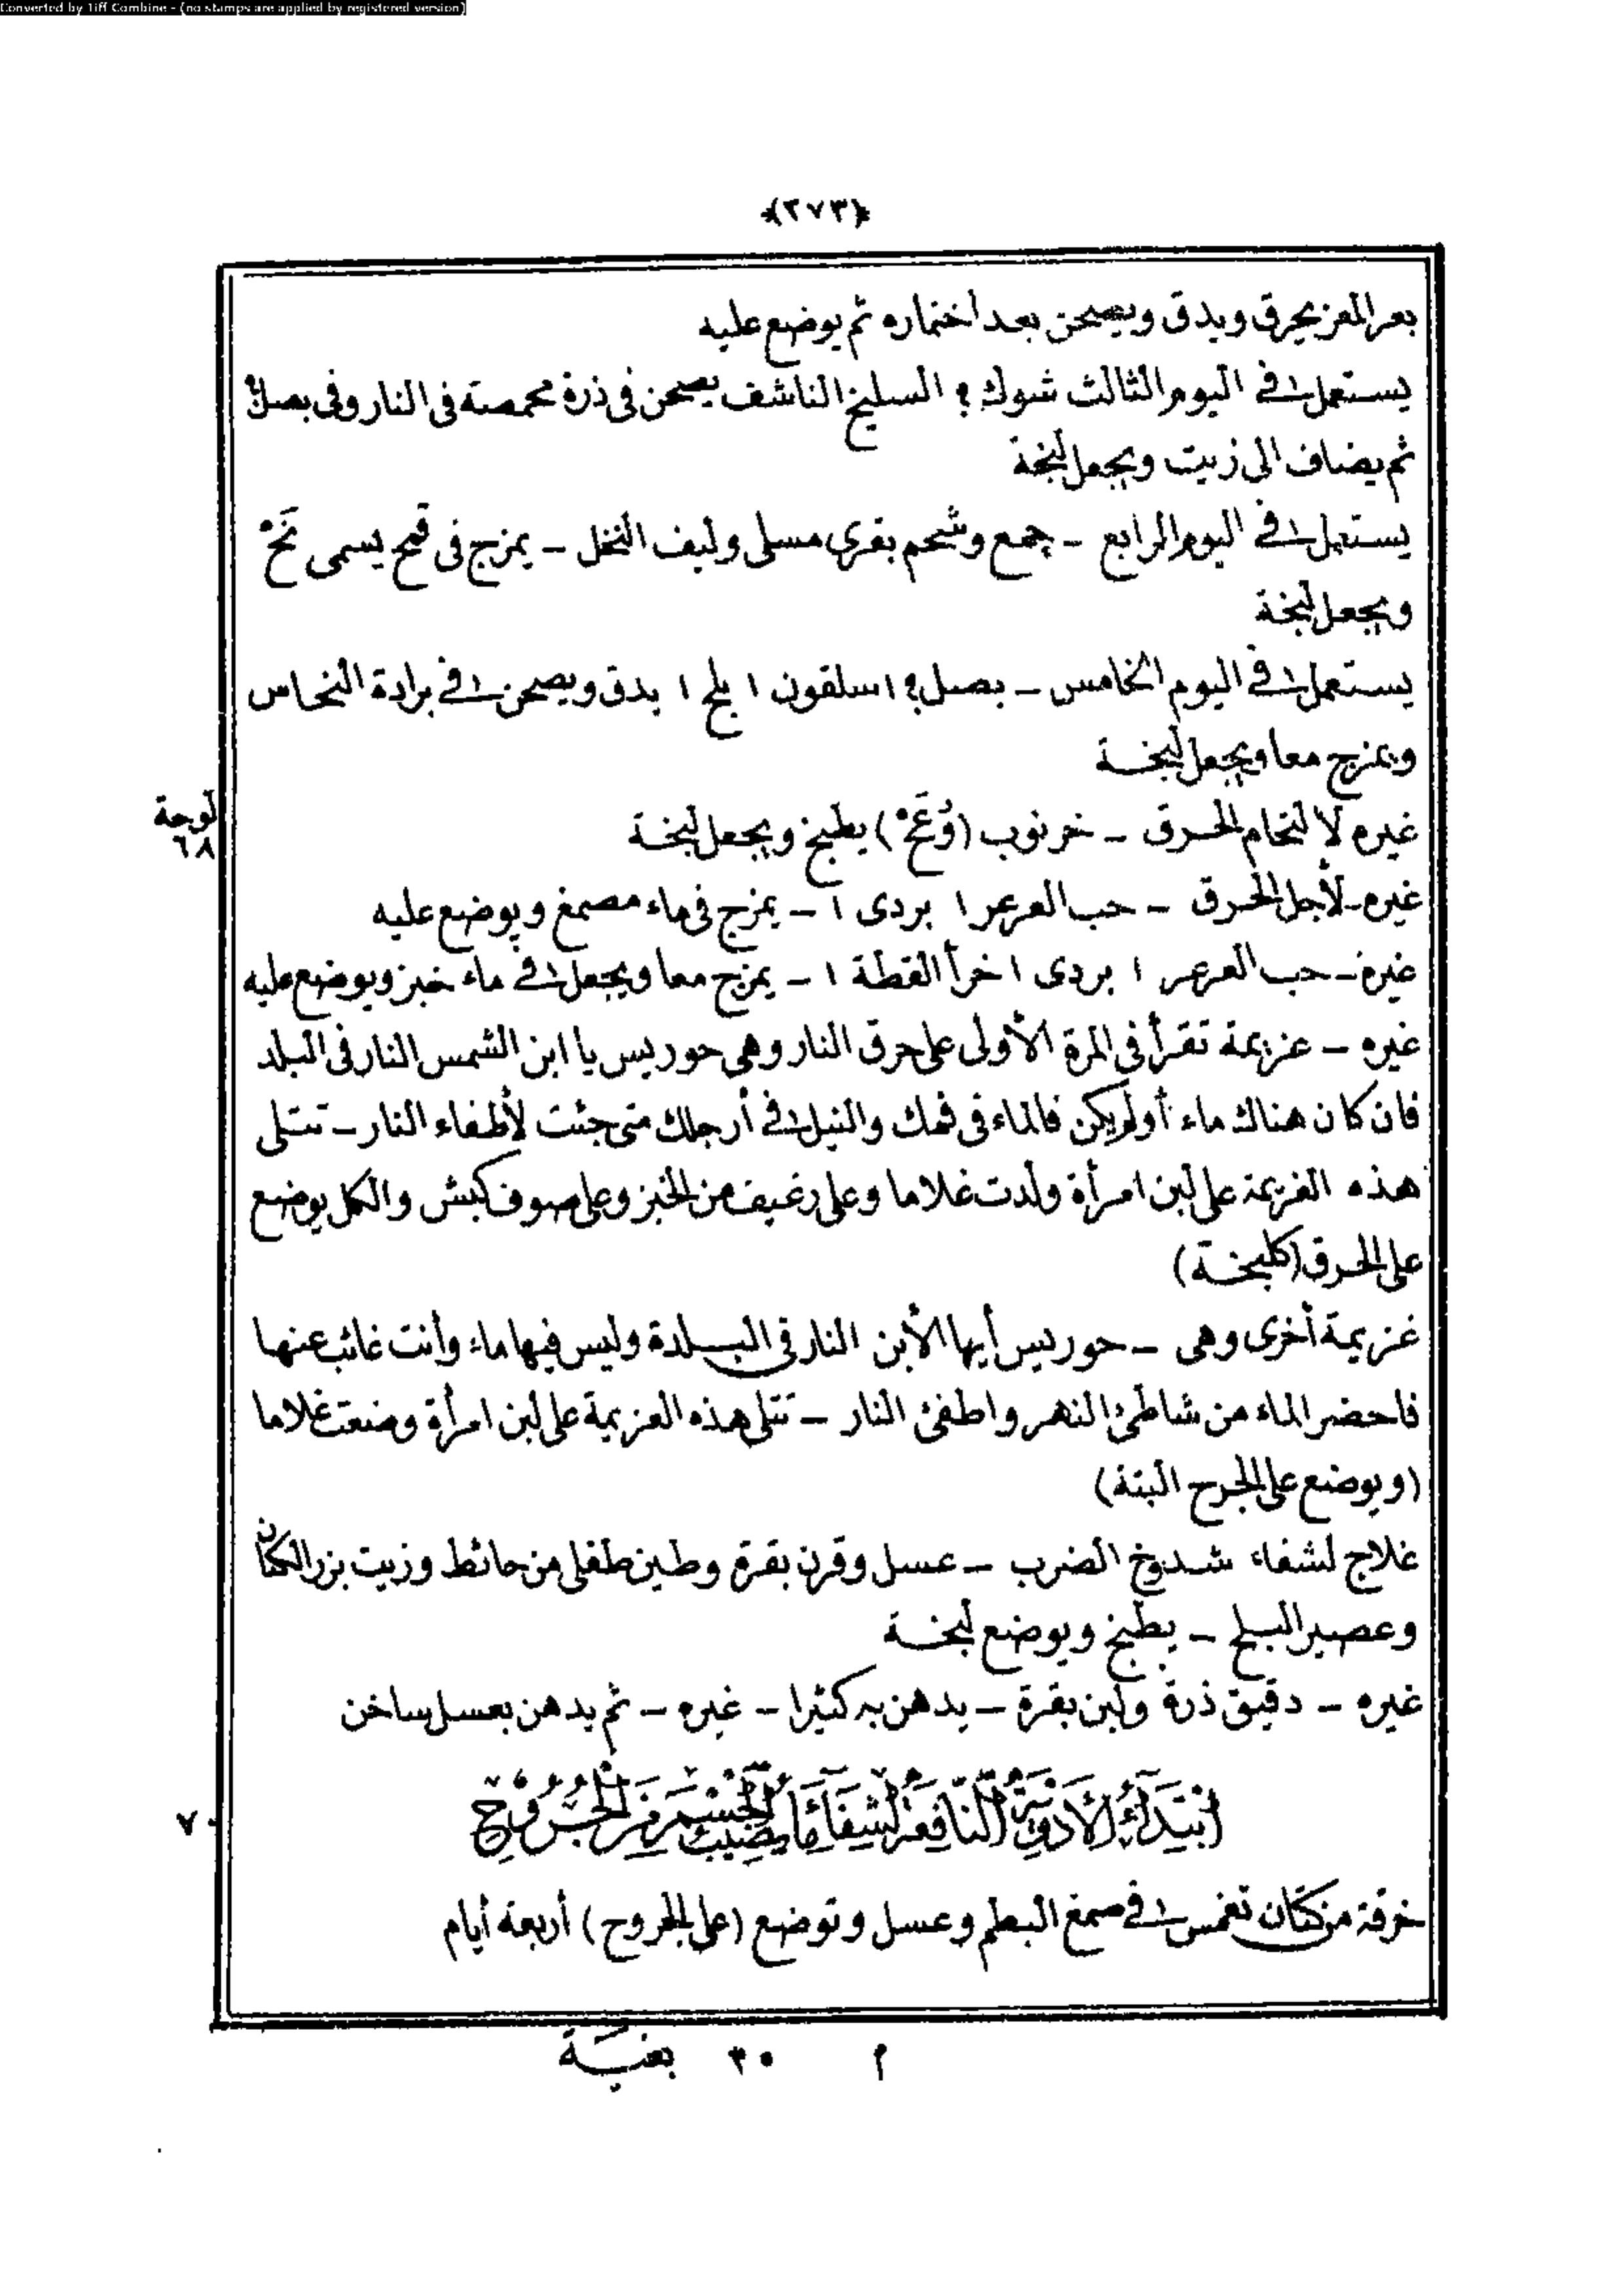 Converted by Tiff Combine - (no stamps are applied by registered version)
﴿٢٧٣﴾
بعر المعز يحرق ويدق ويصحن بعد اختماره ثم يوضع عليه
يستعمل في اليوم الثالث شوك ؟ السليخ الناشف يصحن فى ذرة محمصة فى النار وفى بصل ؟
ثم يضاف الى زيت ويجعل لبخة
يستعمل في اليوم الرابع – جمع وشحم بقرى مسلى وليف النخل – يمزج فى قمح يسمى نَخْ
ويجعل لبخة
يستعمل في اليوم الخامس – بصل ؟ ١ سلقون ١ بلح ١ يدق ويصحن في برادة النحاس
ويمزج معا ويجعل لبخة
لوحة
٦٨
غيره لالتحام الحرق – خرنوب (وُعَحْ) يطبخ ويجعل لبخة
غيره – لأجل الحرق – حب العرعر ١ بردى ١ – يمزج فى ماء مصمغ ويوضع عليه
غيره – حب العرعر ١ بردى ١ خرأ القطة ١ – يمزج معا ويجعل في ماء خبز ويوضع عليه
غيره – عزيمة تقرأ فى المرة الأولى على حرق النار وهى حوريس يا ابن الشمس النار فى البلد
فان كان هناك ماء أو لم يكن فالماء فى فمك والنيل في أرجلك متى جئت لأطفاء النار – تتلى
هذه العزيمة على لبن امرأة ولدت غلاما وعلى رغيف من الخبز وعلى صوف كبش والكل يوضع
على الحرق (كلبخة)
عزيمة أخرى وهى – حوريس أيها الأبن النار فى البلدة وليس فيها ماء وأنت غائب عنها
فاحضر الماء من شاطئ النهر واطفئ النار – تتلى هذه العزيمة على لبن امرأة وضعت غلاما
(ويوضع على الجرح البتة)
علاج لشفاء شدوخ الضرب – عسل وقرن بقرة وطين طفلى من حائط وزيت بزر الكتان
وعصير البلح – يطبخ ويوضع لبخة
غيره – دقيق ذرة ولبن بقرة – يدهن به كثيرا – غيره – ثم يدهن بعسل ساخن
٧٠
اِبْتِدَاءُ الْأَدْوِيَةِ النَّافِعَةِ لِشِفَاءِ مَا يُصِيبُ الْجِسْمَ مِنَ الْجُرُوحِ
خرقة من كتان تغمس في صمغ البطم وعسل وتوضع (على الجروح) أربعة أيام
م ٣٥ بغية